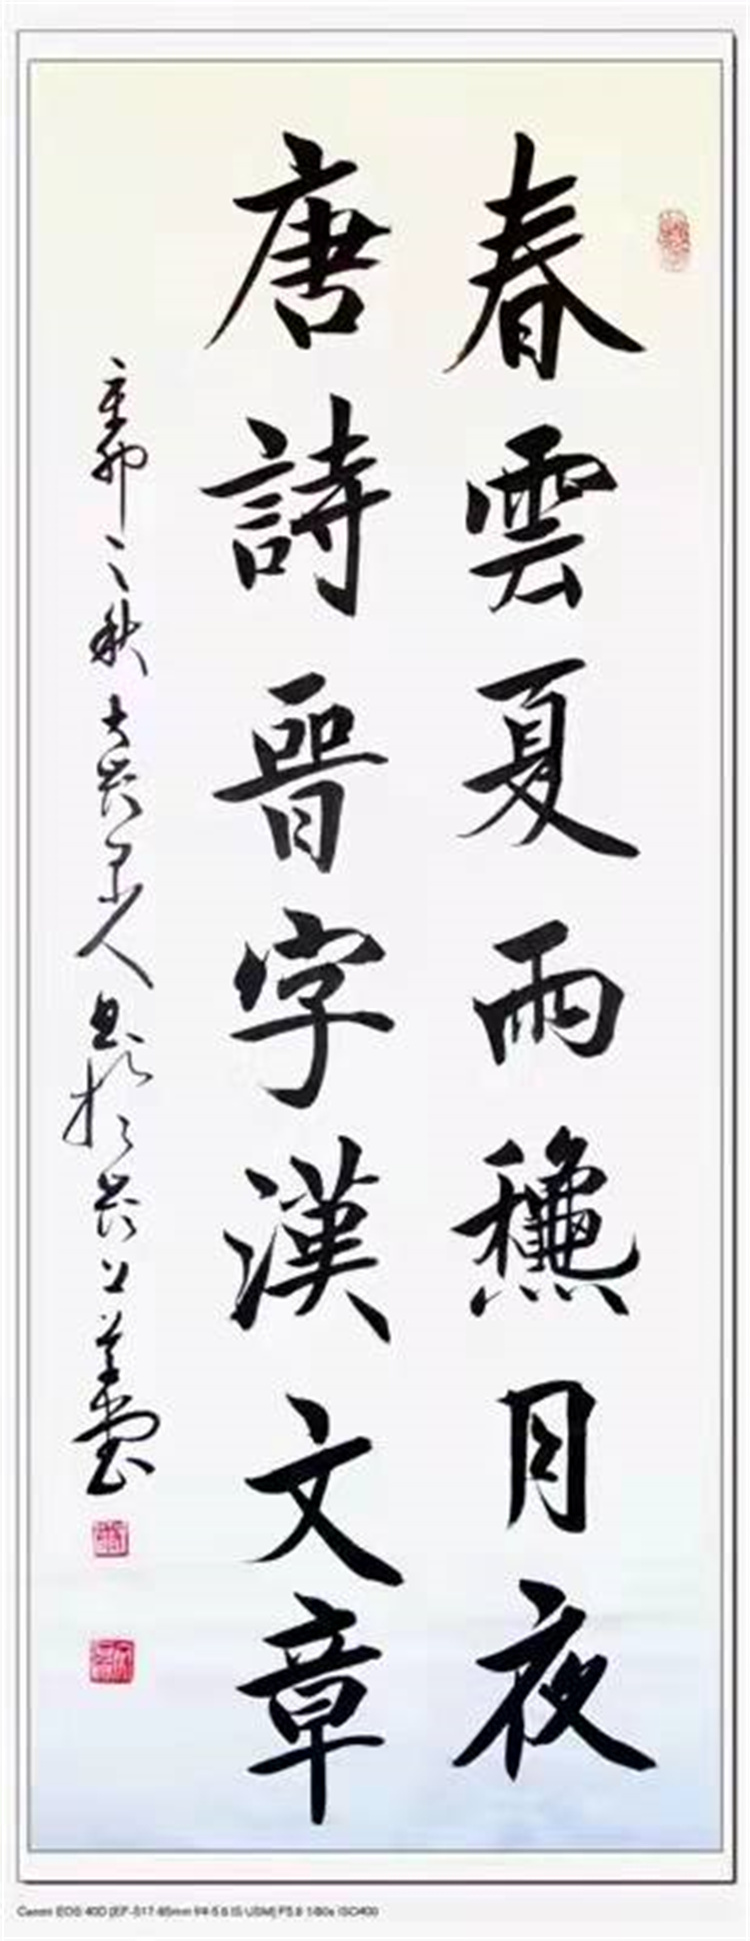 春雲夏雨龝月夜
唐詩晉字漢文章
辛卯之秋大兴墨人書於兴公草堂
Canon EOS 40D [EF-S17-85mm f/4-5.6 IS USM] F5.6 1/80s ISO400